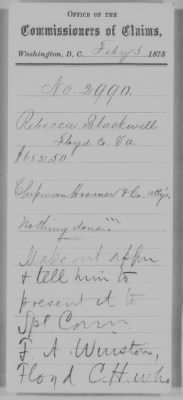 OFFICE OF THE
Commissioners of Claims,
Washington, D. C., Feby 8 1875
No. 2990.
Rebecca Blackwell
Floyd Co. Va.
$652.50
Chipman Hosmer & Co. attys.
Nothing done.
Make out
& tell him to
present it to
Spl Comr
F. A. Winston,
Floyd C. H. who